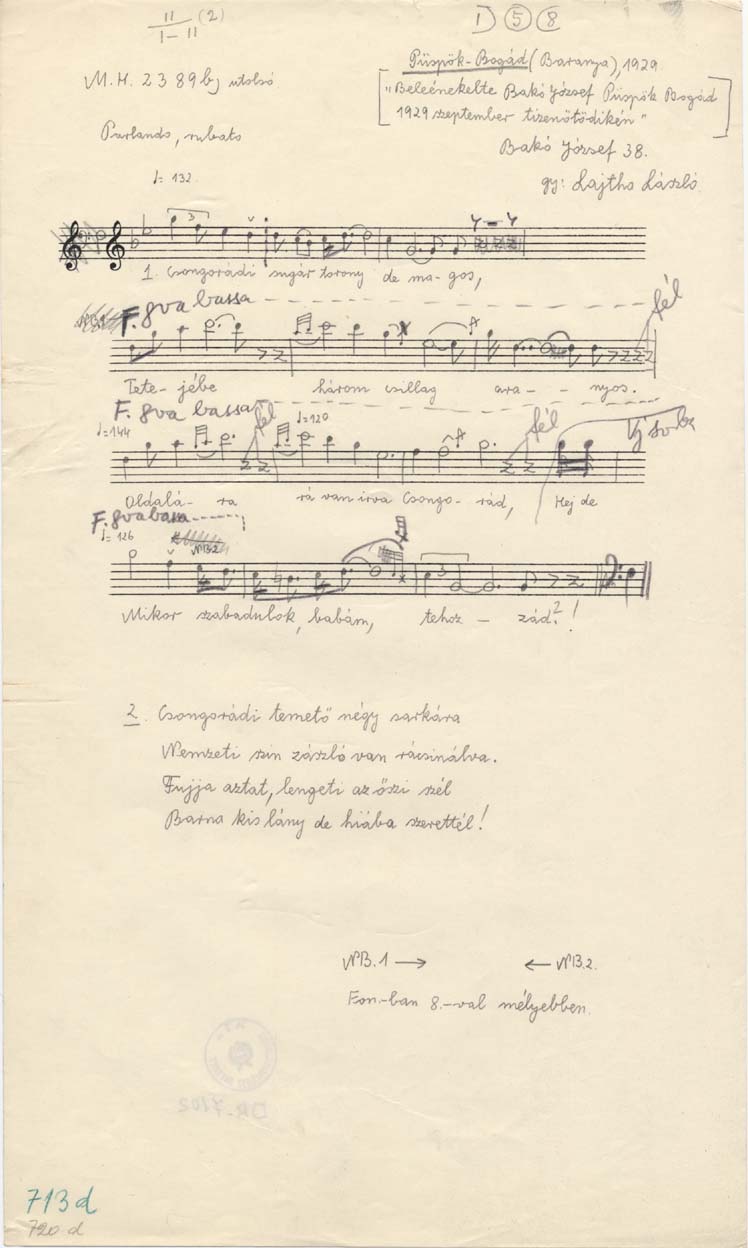 II (2)
I-II
I) 5 8
M.H. 2389b) utolsó
Püspök-Bogád (Baranya), 1929
"Beleénekelte Bakó József Püspök Bogád
1929 szeptember tizenötödikén"
Parlando, rubato
Bakó József 38.
♩= 132.
gy: Lajtha László
3
1. Csongorádi sugár torony de ma-gos,
F. 8va bassa
fél
Tete-jébe három csillag ara--nyos.
F. 8va bassa
fél
♩=144
♩=120
fél
Új sorba
Oldalá-ra rá van irva Csongo-rád, Hej de
F. 8va bassa
♩= 126
NB.2
3
Mikor szabadulok, babám, tehoz-zád?!
2. Csongorádi temető négy sarkára
Nemzeti szin zászló van rácsinálva.
Fujja aztat, lengeti az őszi szél
Barna kis lány de hiába szerettél!
NB.1 → ← NB.2.
Fon.-ban 8.-val mélyebben.
713d
720 d